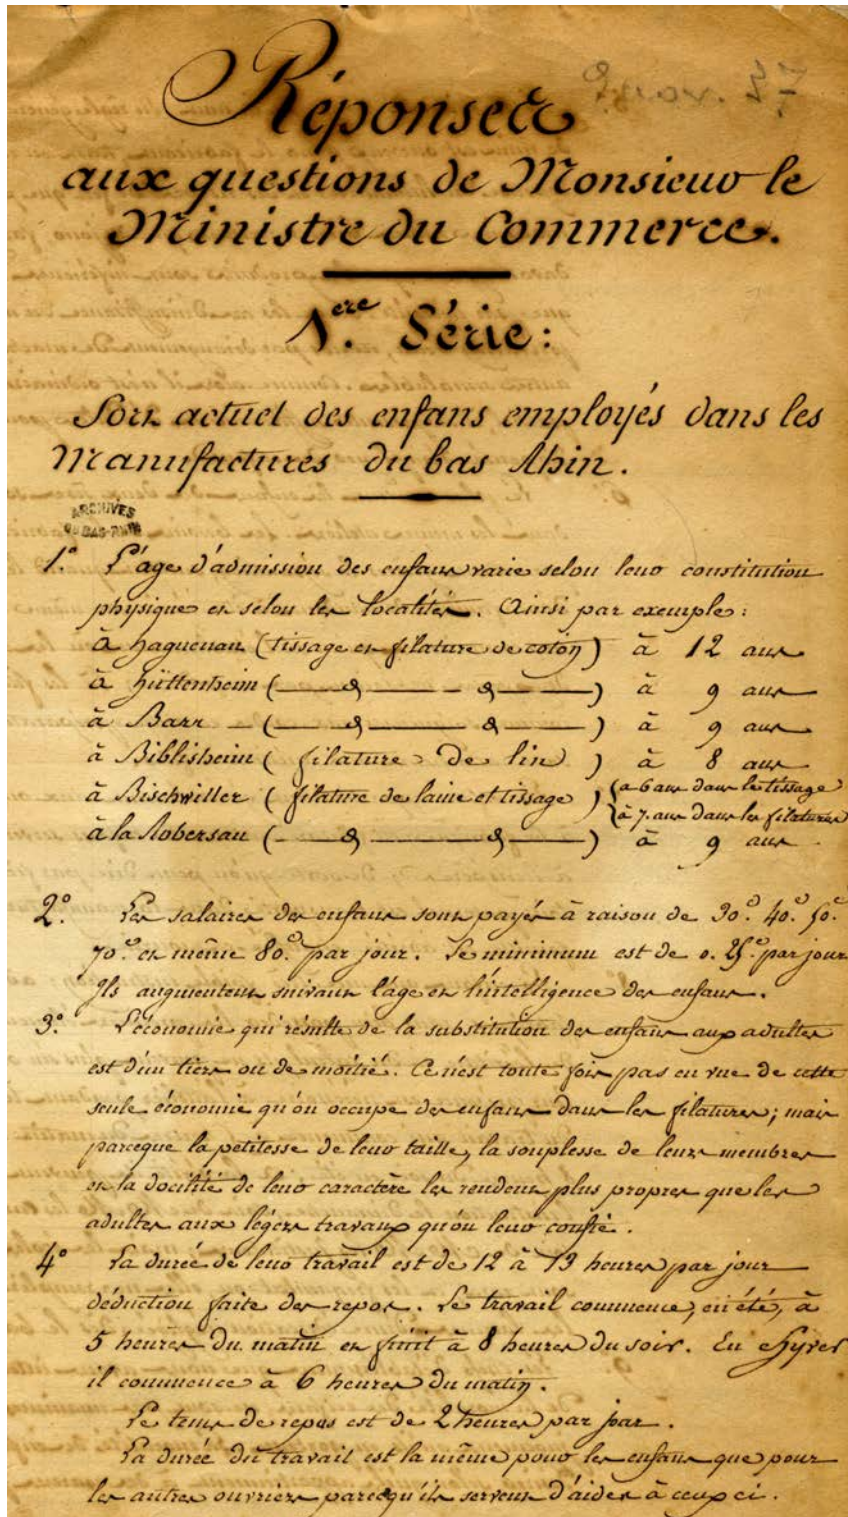 Réponses
aux questions de Monsieur le
Ministre du Commerce.
1.ere Série:
Sort actuel des enfans employés dans les
Manufactures du bas Rhin.
ARCHIVES
DU BAS-RHIN
1.° L'âge d'admission des enfans varie selon leur constitution
physique et selon les localités. Ainsi par exemple:
à haguenau (tissage et filature de coton) à 12 ans
à hüttenheim (—— d —— d ——) à 9 ans
à Barr — (—— d —— d ——) à 9 ans
à Biblisheim ( filature de lin ) à 8 ans
à Bischwiller ( filature de laine et tissage ) { à 6 ans dans le tissage
{ à 7 ans dans les filatures
à la Robersau (—— d —— d ——) à 9 ans
2.° Les salaires des enfans sont payés à raison de 30.c 40.c 50.c
70.c et même 80.c par jour. Le minimum est de 0.25.c par jour
Ils augmentent suivant l'âge et l'intelligence des enfans.
3.° L'économie qui résulte de la substitution des enfans aux adultes
est d'un tiers ou de moitié. Ce n'est toute fois pas en vue de cette
seule économie qu'on occupe des enfans dans les filatures; mais
parceque la petitesse de leur taille, la souplesse de leurs membres
et la docilité de leur caractère les rendent plus propres que les
adultes aux légers travaux qu'on leur confie.
4° La durée de leur travail est de 12 à 13 heures par jour
déduction faite des repos. Le travail commence, en été, à
5 heures du matin et finit à 8 heures du soir. En hyver
il commence à 6 heures du matin.
Le tems de repos est de 2 heures par jour.
La durée du travail est la même pour les enfans que pour
les autres ouvriers parcequ'ils servent d'aides à ceux ci.